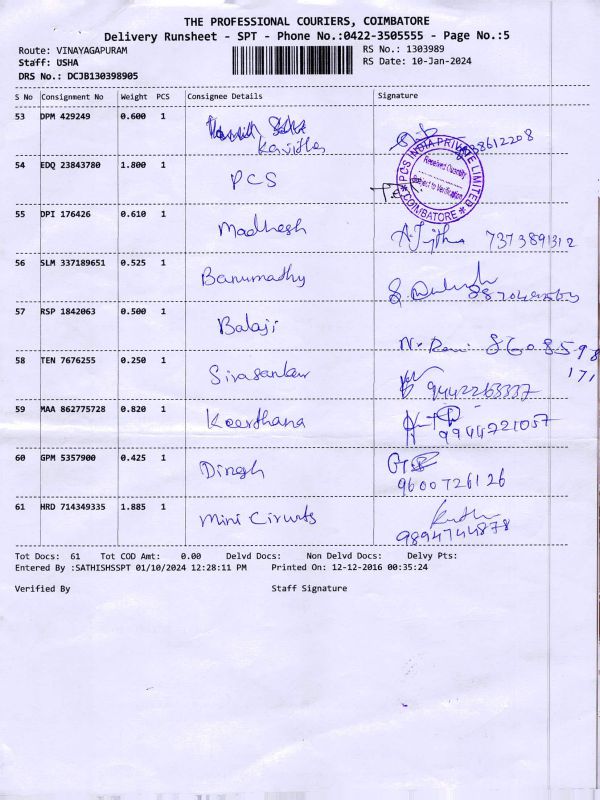 THE PROFESSIONAL COURIERS, COIMBATORE
Delivery Runsheet - SPT - Phone No.:0422-3505555 - Page No.:5
Route: VINAYAGAPURAM RS No.: 1303989
Staff: USHA RS Date: 10-Jan-2024
DRS No.: DCJB130398905
S No Consignment No Weight PCS Consignee Details Signature
53 DPM 429249 0.600 1 Kavitha
54 EDQ 23843780 1.800 1 PCS
PCS INDIA PRIVATE LIMITED
Received Quantity
Subject to Verification
* COIMBATORE *
55 DPI 176426 0.610 1 Madhesh 7373891312
56 SLM 337189651 0.525 1 Banumathy
57 RSP 1842063 0.500 1 Balaji N. Rani 8608598
171
58 TEN 7676255 0.250 1 Sivasankar 9442263337
59 MAA 862775728 0.820 1 Keerthana 9944721057
60 GPM 5357900 0.425 1 Dinesh 9600726126
61 HRD 714349335 1.885 1 Mini Circuits 9894744878
Tot Docs: 61 Tot COD Amt: 0.00 Delvd Docs: Non Delvd Docs: Delvy Pts:
Entered By :SATHISHSSPT 01/10/2024 12:28:11 PM Printed On: 12-12-2016 00:35:24
Verified By Staff Signature